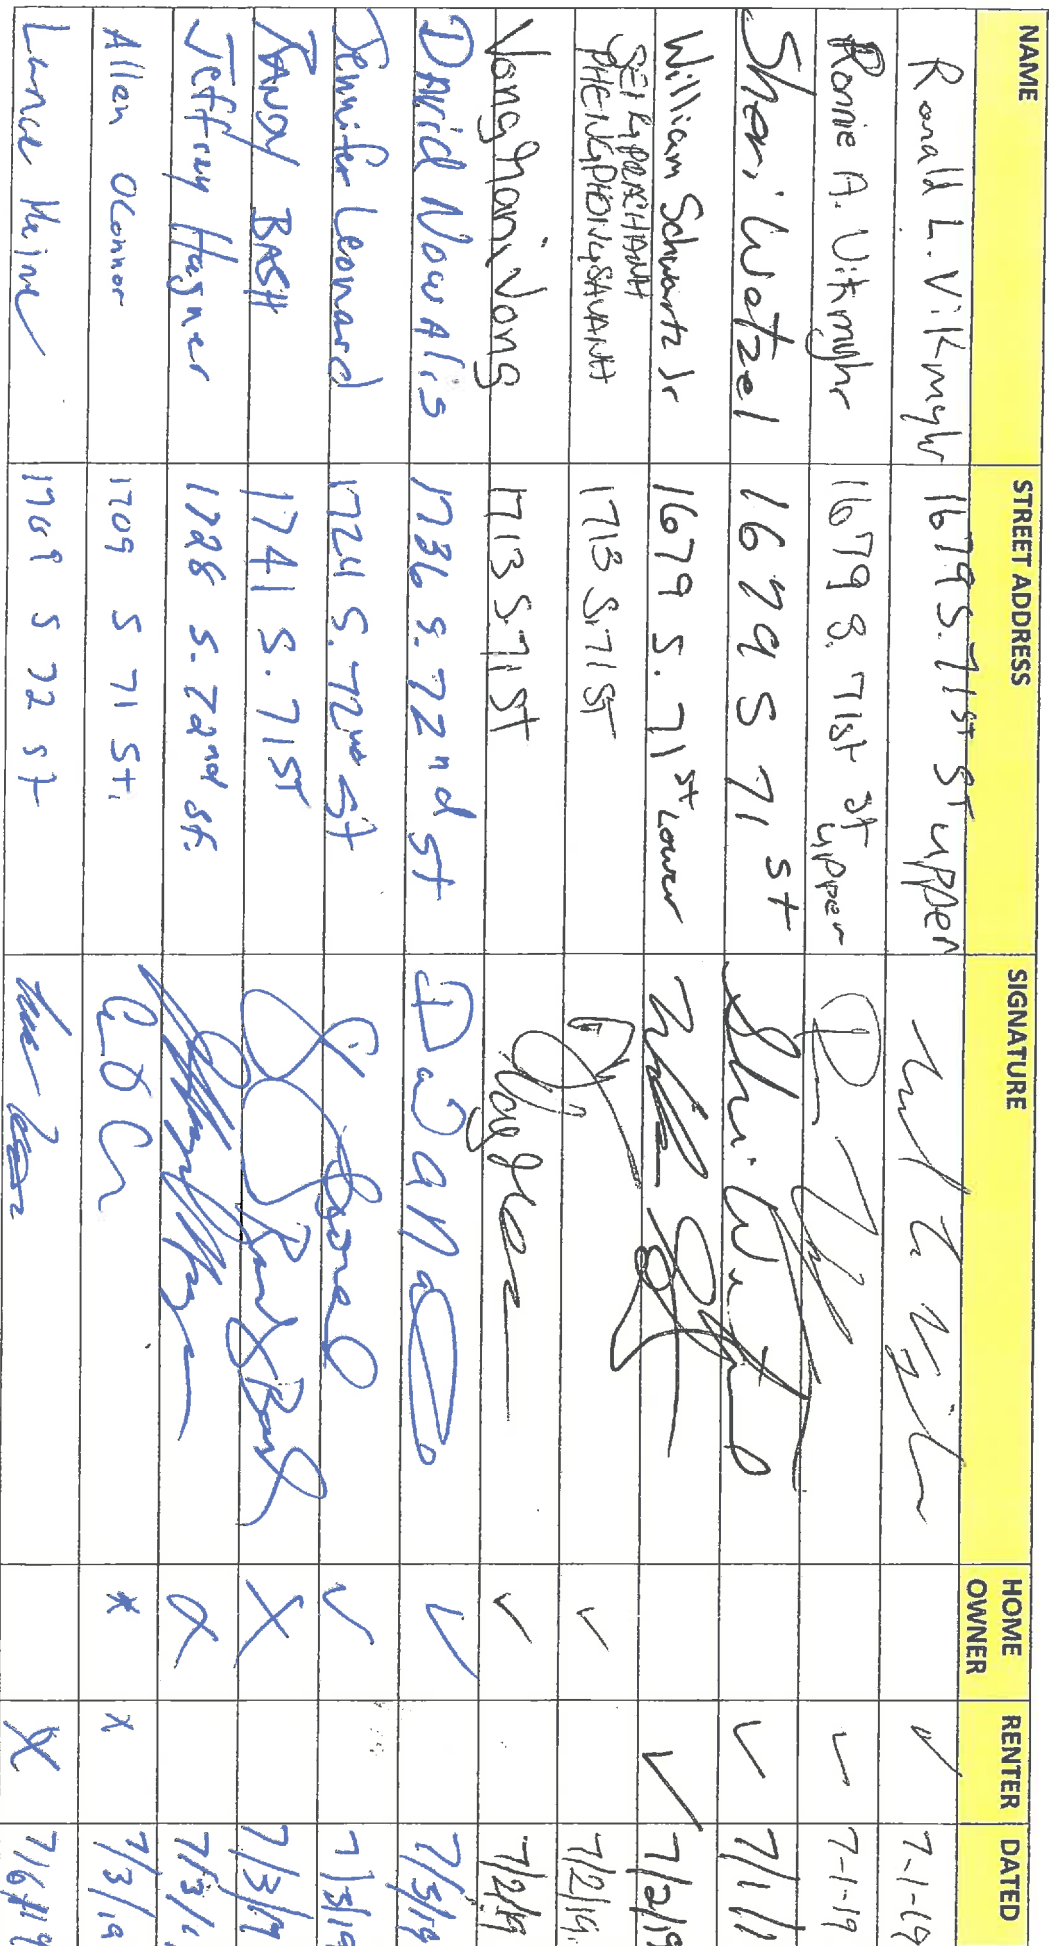 NAME STREET ADDRESS SIGNATURE HOME OWNER RENTER DATED
Ronald L. Vitmyhr 1679 S. 71st St upper ✓ 7-1-19
Ronnie A. Vitmyhr 1679 S. 71st St upper ✓ 7-1-19
Sheri Wetzel 1679 S 71 st Sheri ✓ 7/1/1
William Schwartz Jr 1679 S. 71st Lower ✓ 7/2/19
PHENGPHONGSAVANH 1713 S. 71 ST ✓ 7/2/19
Vong Mani Vong 1713 S. 71 St ✓ 7/2/19
DAvid NowAlis 1736 S. 72nd St ✓ 7/3/19
Jennifer Leonard 1724 S. 72nd St ✓ 7/3/19
RANDY BASH 1741 S. 71 ST X 7/3/19
Jeffrey Hagner 1728 S. 72nd St. X 7/3/1
Allen OConnor 1709 S 71 St. * x 7/3/19
Lance 1709 S 72 St X 7/6/19